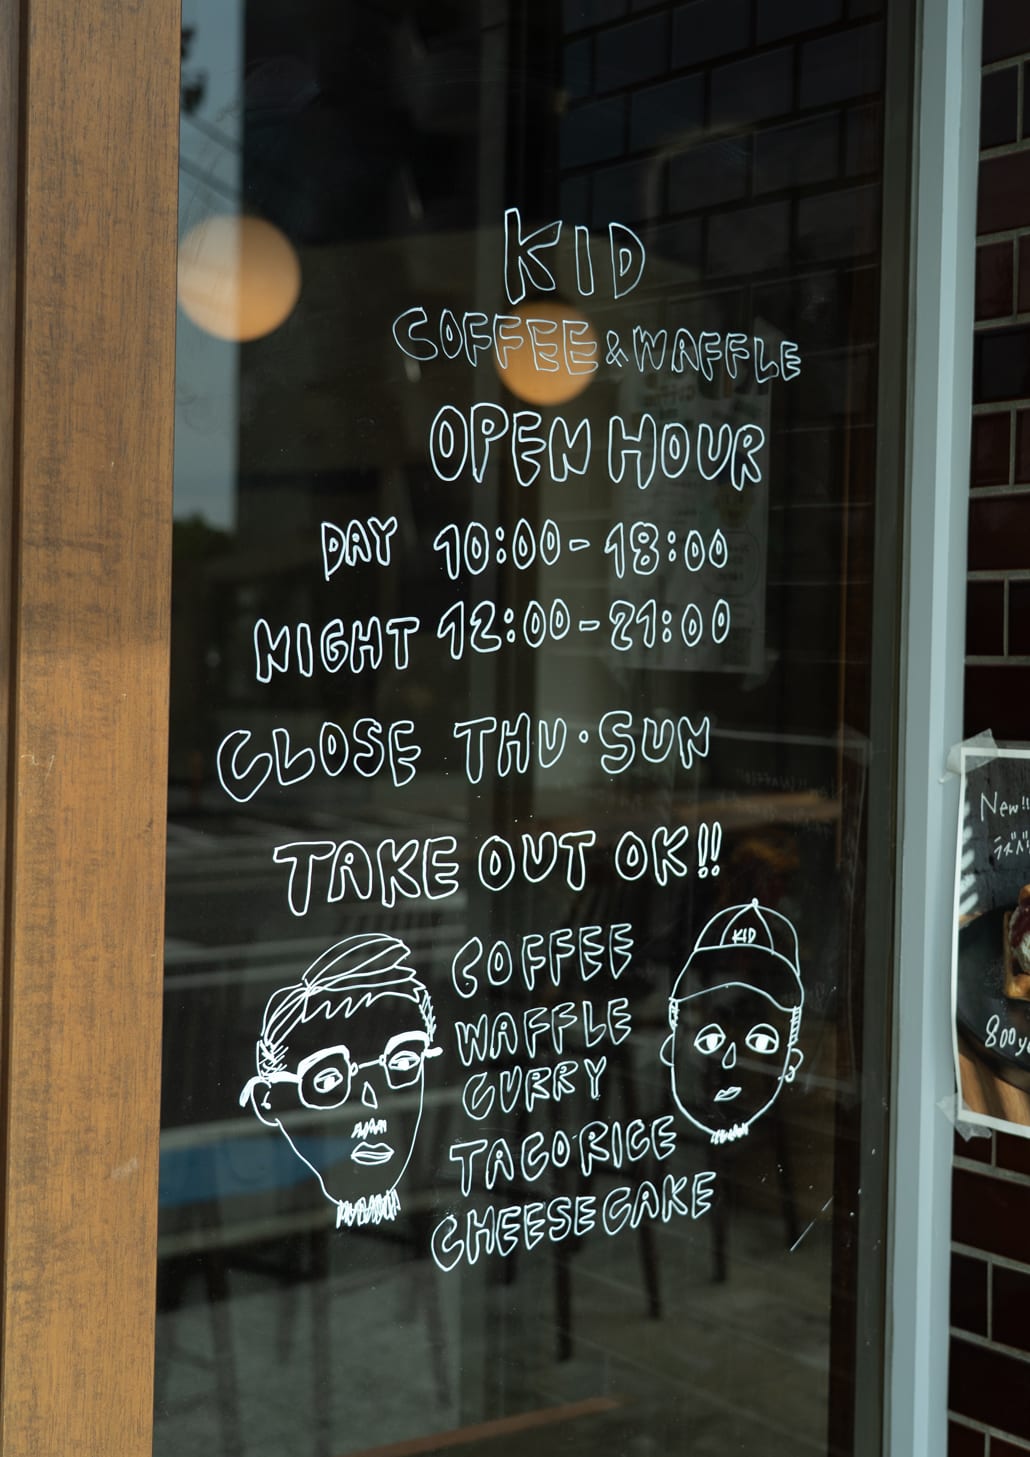 KID
COFFEE & WAFFLE
OPEN HOUR
DAY 10:00-18:00
NIGHT 12:00-21:00
CLOSE THU・SUN
TAKE OUT OK!!
KID
COFFEE
WAFFLE
CURRY
TACORICE
CHEESECAKE
New!!
800